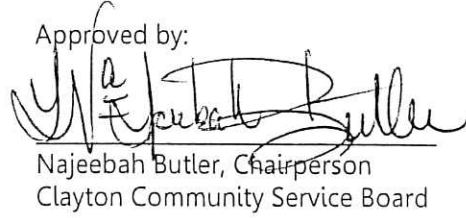 Approved by:
Najeebah Butler
Najeebah Butler, Chairperson
Clayton Community Service Board